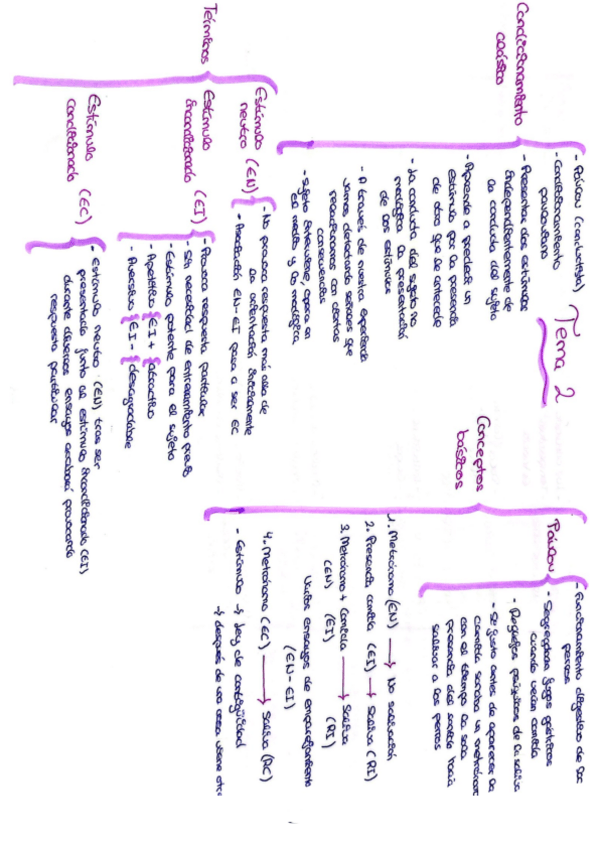 Tema 2
Condicionamiento
clásico
- Pávlov (conductista)
- Condicionamiento
pavloviano
- Presentar dos estímulos
independientemente de
la conducta del sujeto
- Aprende a predecir un
estímulo por la presencia
de otro que le antecede
- La conducta del sujeto no
modifica la presentación
de los estímulos
- A través de nuestra experiencia
vamos detectando señales que
relacionamos con ciertas
consecuencias
- Sujeto interviene, opera en
el medio y lo modifica
Términos
Estímulo
neutro (EN)
- No provoca respuesta más allá de
la orientación inicialmente
- Asociación EN-EI pasa a ser EC
Estímulo
incondicionado (EI)
- Provoca respuesta particular
- Sin necesidad de entrenamiento previo
- Estímulo potente para el sujeto
- Apetitivo EI+ atractivo
- Aversivo EI- desagradable
Estímulo
condicionado (EC)
- Estímulo neutro (EN) tras ser
presentado junto al estímulo incondicionado (EI)
durante diversos ensayos acabará provocando
respuesta particular
Conceptos
básicos
Pávlov
- Funcionamiento digestivo de los
perros
- Segregaban jugos gástricos
cuando veían comida
- Reflejos psíquicos de la saliva
- Si justo antes de aparecer la
comida sonaba un metrónomo
con el tiempo la sola
presencia del sonido hacía
salivar a los perros
1. Metrónomo (EN) → No salivación
2. Presencia comida (EI) → saliva (RI)
3. Metrónomo + comida → saliva
(EN) (EI) (RI)
Varios ensayos de emparejamiento
(EN-EI)
4. Metrónomo (EC) → saliva (RC)
- Estímulo → Ley de contigüidad
→ después de una cosa viene otra